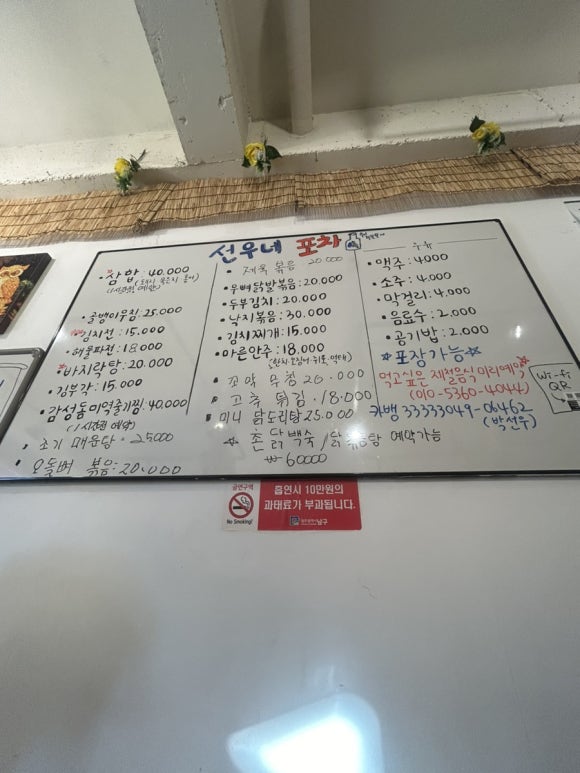 선우네 포차
삼합: 40.000
(돼지 묵은지 홍어)
(1시간전 예약)
골뱅이무침 25.000
김치전: 15.000
해물파전: 18.000
바지락탕: 20.000
김부각: 15.000
감성돔미역줄기찜: 40,000
(1시간전 예약)
조기 매운탕 = 25000
오돌뼈 볶음: 20.000
제육 볶음 20.000
무뼈닭발볶음: 20.000
두부김치: 20.000
낙지볶음: 30.000
김치찌개: 15.000
마른안주: 18.000
20.000
고추 튀김 18.000
미니 닭도리탕 25.000
촌닭백숙/닭볶음탕 예약가능
₩60000
주류
맥주: 4000
소주: 4.000
막걸리: 4.000
음료수: 2.000
공기밥: 2.000
☆포장가능☆
먹고싶은 제철음식 미리예약
(010-5360-4044)
카뱅 33333049-06462
(박선우)
Wi-Fi
QR
금연구역
No Smoking!
흡연시 10만원의
과태료가 부과됩니다.
광주광역시남구